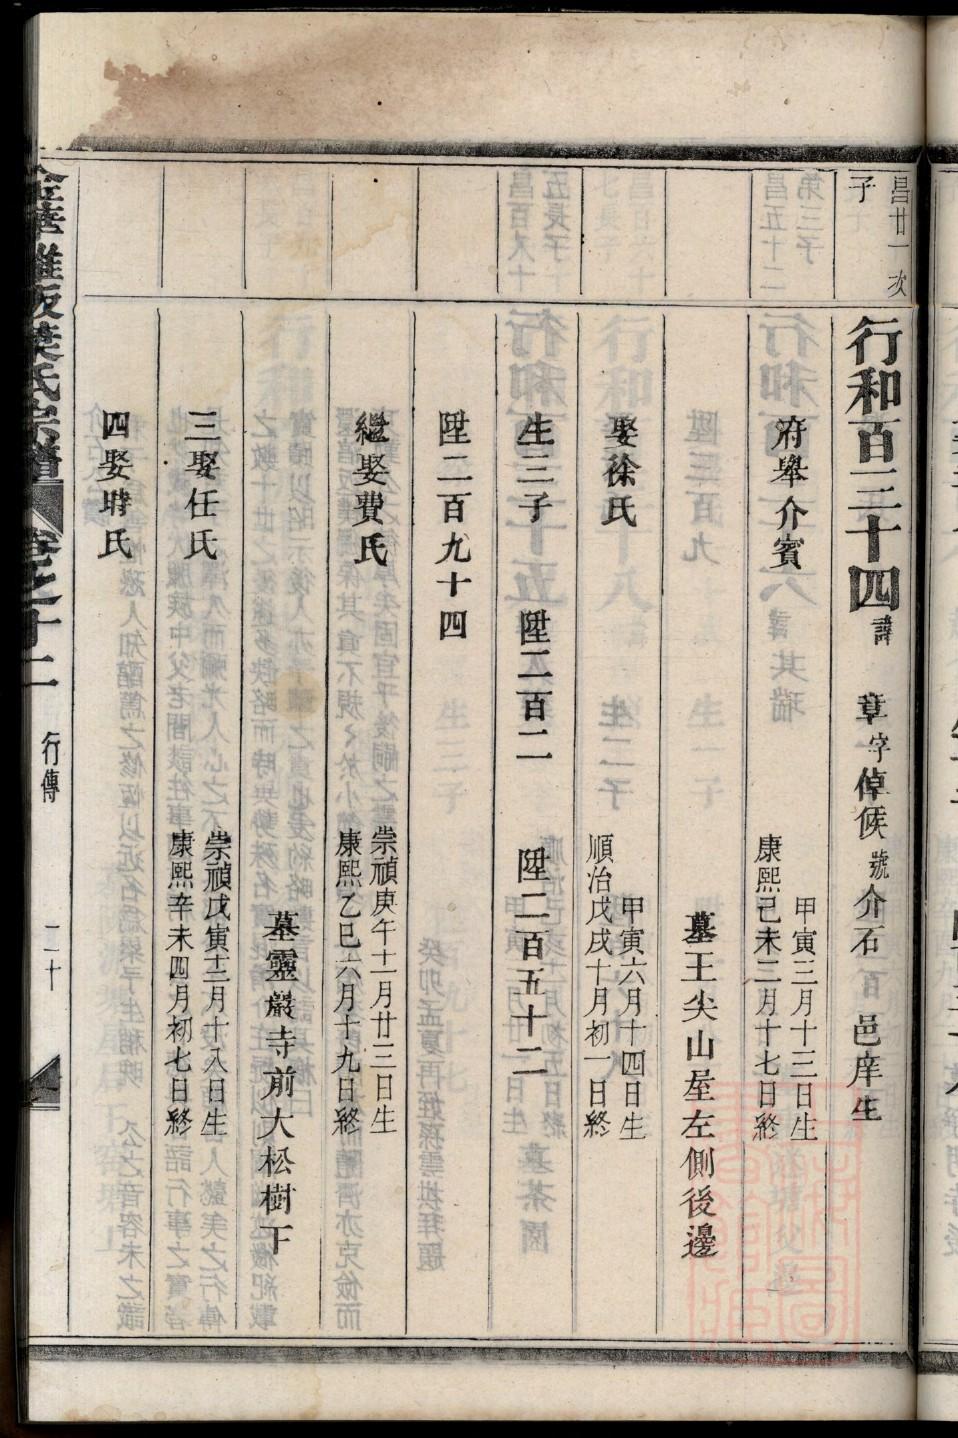 昌廿一次
子
行和百三十四 諱 章 字倬候 號介石 邑庠生
府舉介賓
甲寅三月十三日生
康熙己未三月十七日終
墓王尖山屋左側後邊
娶徐氏
甲寅六月十四日生
順治戊戌十月初一日終
生三子 陞二百二 陞二百五十二
陞二百九十四
繼娶費氏
崇禎庚午十一月廿三日生
康熙乙巳六月十九日終
墓靈巖寺前大松樹下
三娶任氏
崇禎戊寅十二月十八日生
康熙辛未四月初七日終
四娶時氏
葉氏宗譜 卷之十二 行傳 二十